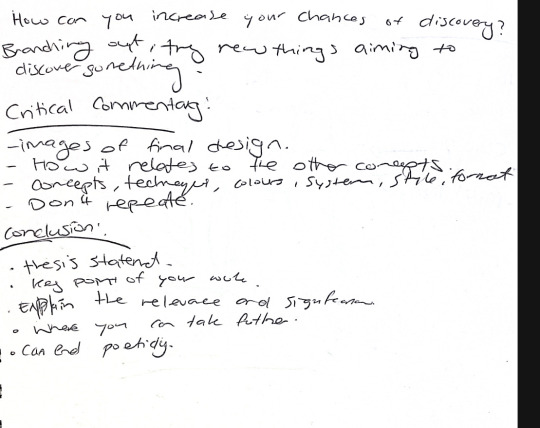 How can you increase your chances of discovery?
Branching out, try new things aiming to
discover something.
Critical Commentary:
- images of final design.
- How it relates to the other concepts.
- concepts, colours, system, style, format
- Don't repeate.
Conclusion:
• thesis statement.
• key point of your work.
• Explain the relevace and significance
• where you can take further.
• Can end poeticly.